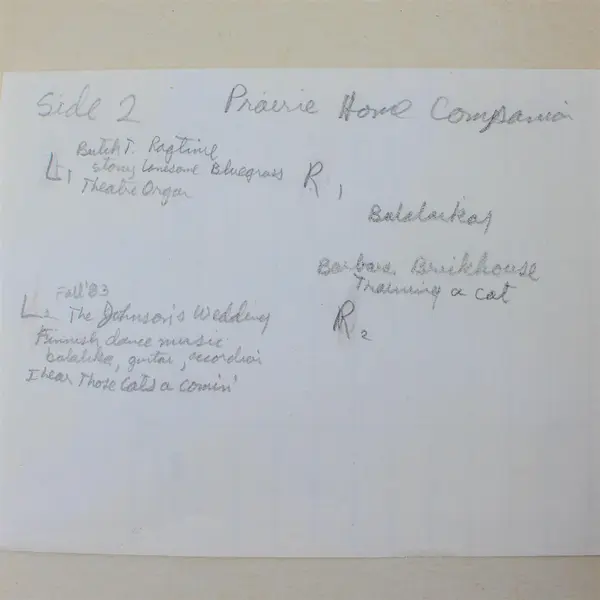 Side 2 Prairie Home Companion
Butch T. Ragtime
L1 Stony Lonesome Bluegrass
Theatre Organ
R1
Balalaikas
Barbara Brickhouse
Training a Cat
R2
Fall '83
L2 The Johnson's Wedding
Finnish dance music
balalika, guitar, accordian
I hear Those Cats a Comin'